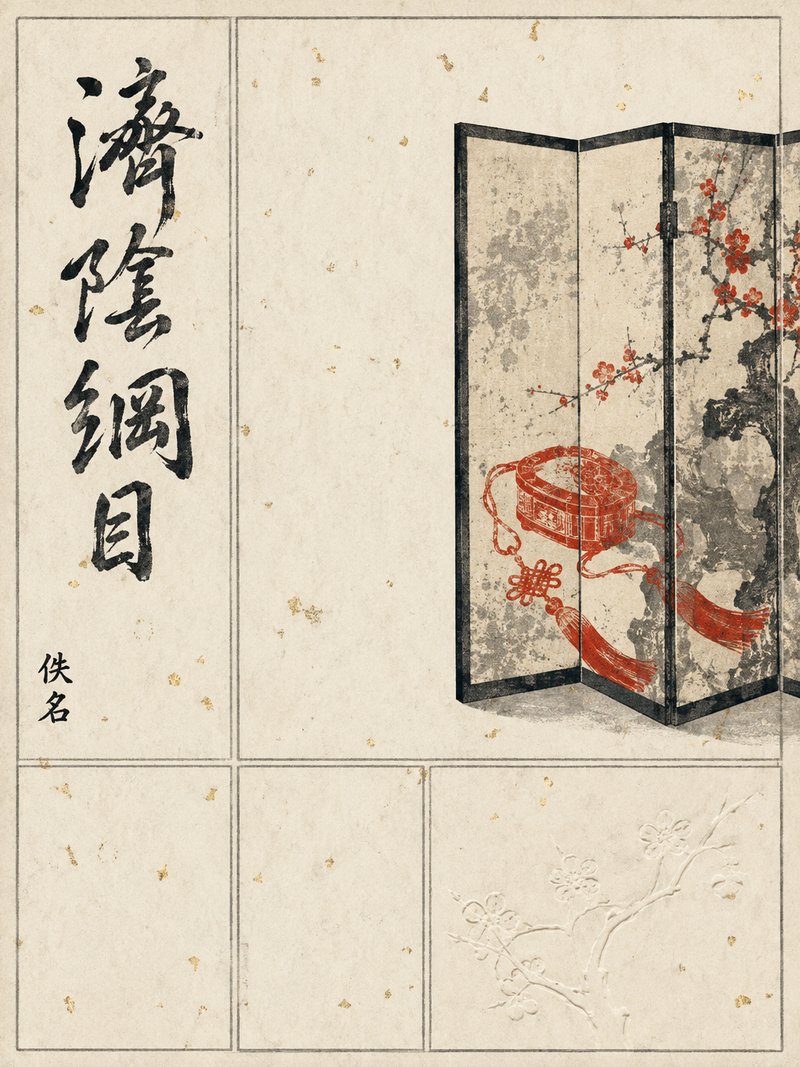 濟陰綱目
佚名